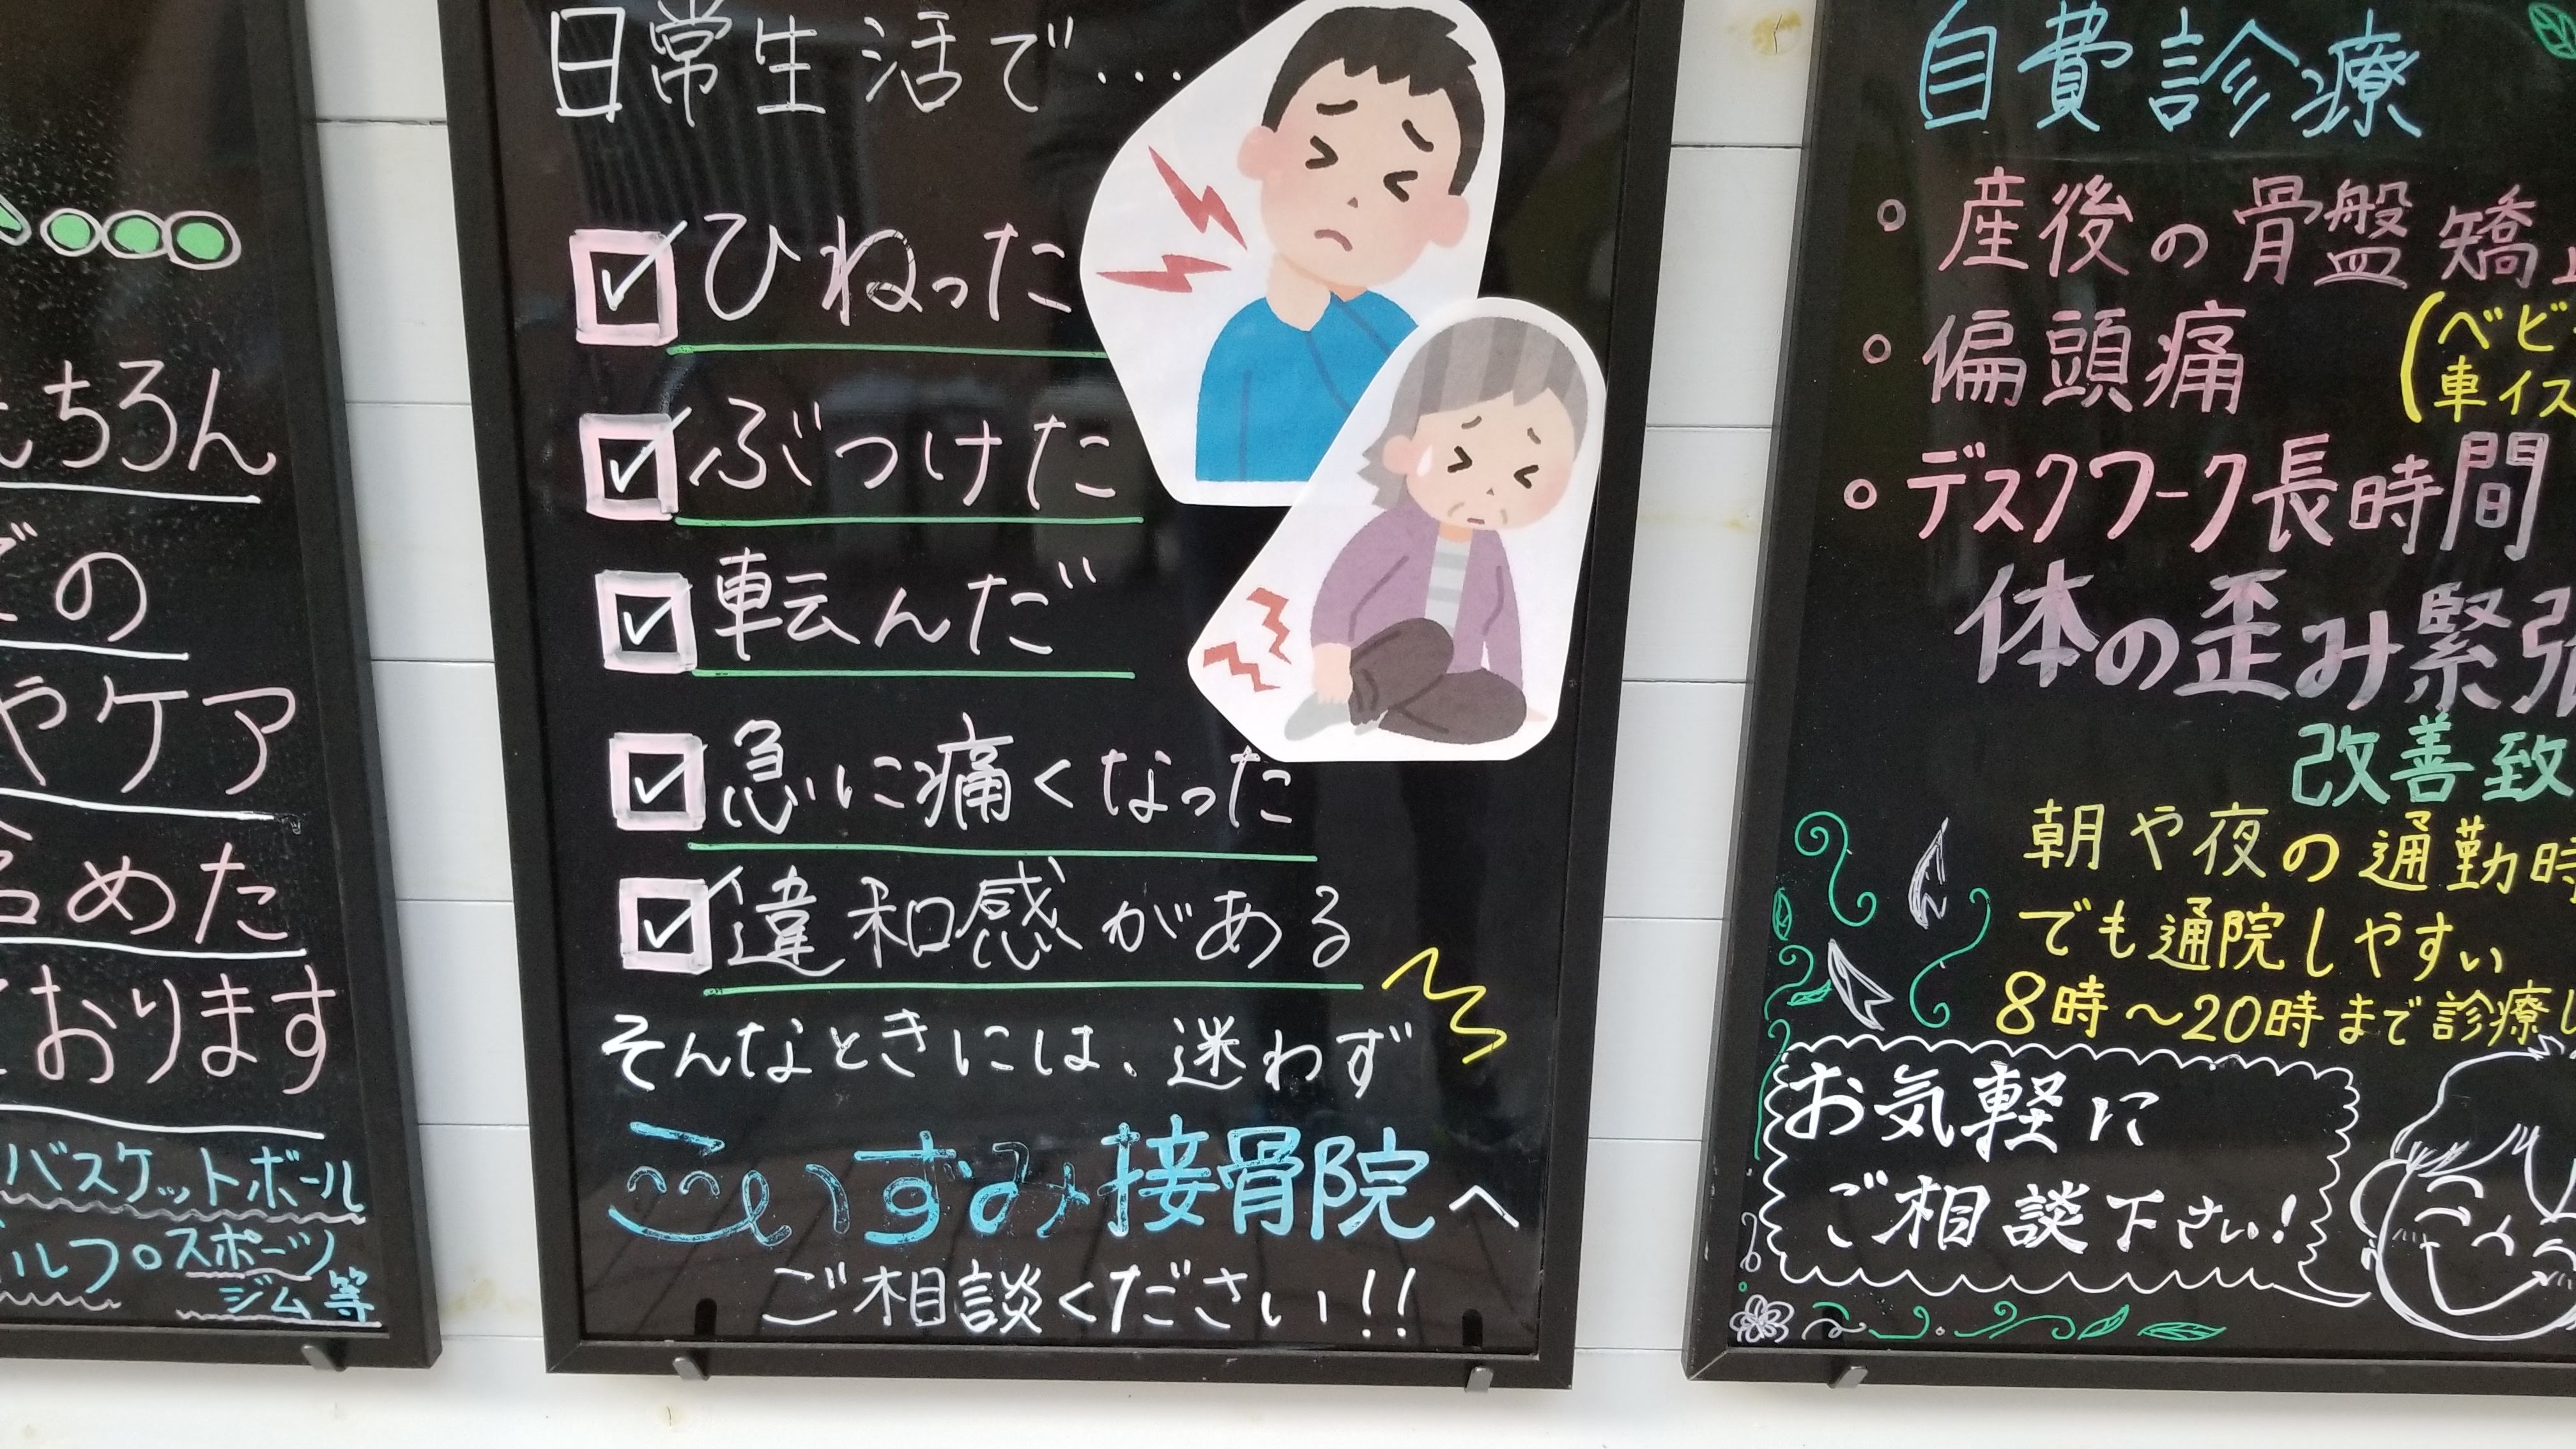 ちろん
の
やケア
含めた
おります
バスケットボール
ルフ・スポーツ
ジム等
日常生活で…
ひねった
ぶつけた
転んだ
急に痛くなった
違和感がある
そんなときには、迷わず
いずみ接骨院へ
ご相談ください!!
自費診療
産後の骨盤矯
偏頭痛
(ベビ
車イス
デスクワーク長時間
体の歪み緊張
改善致
朝や夜の通勤時
でも通院しやすい
8時～20時まで診療
お気軽に
ご相談下さい!